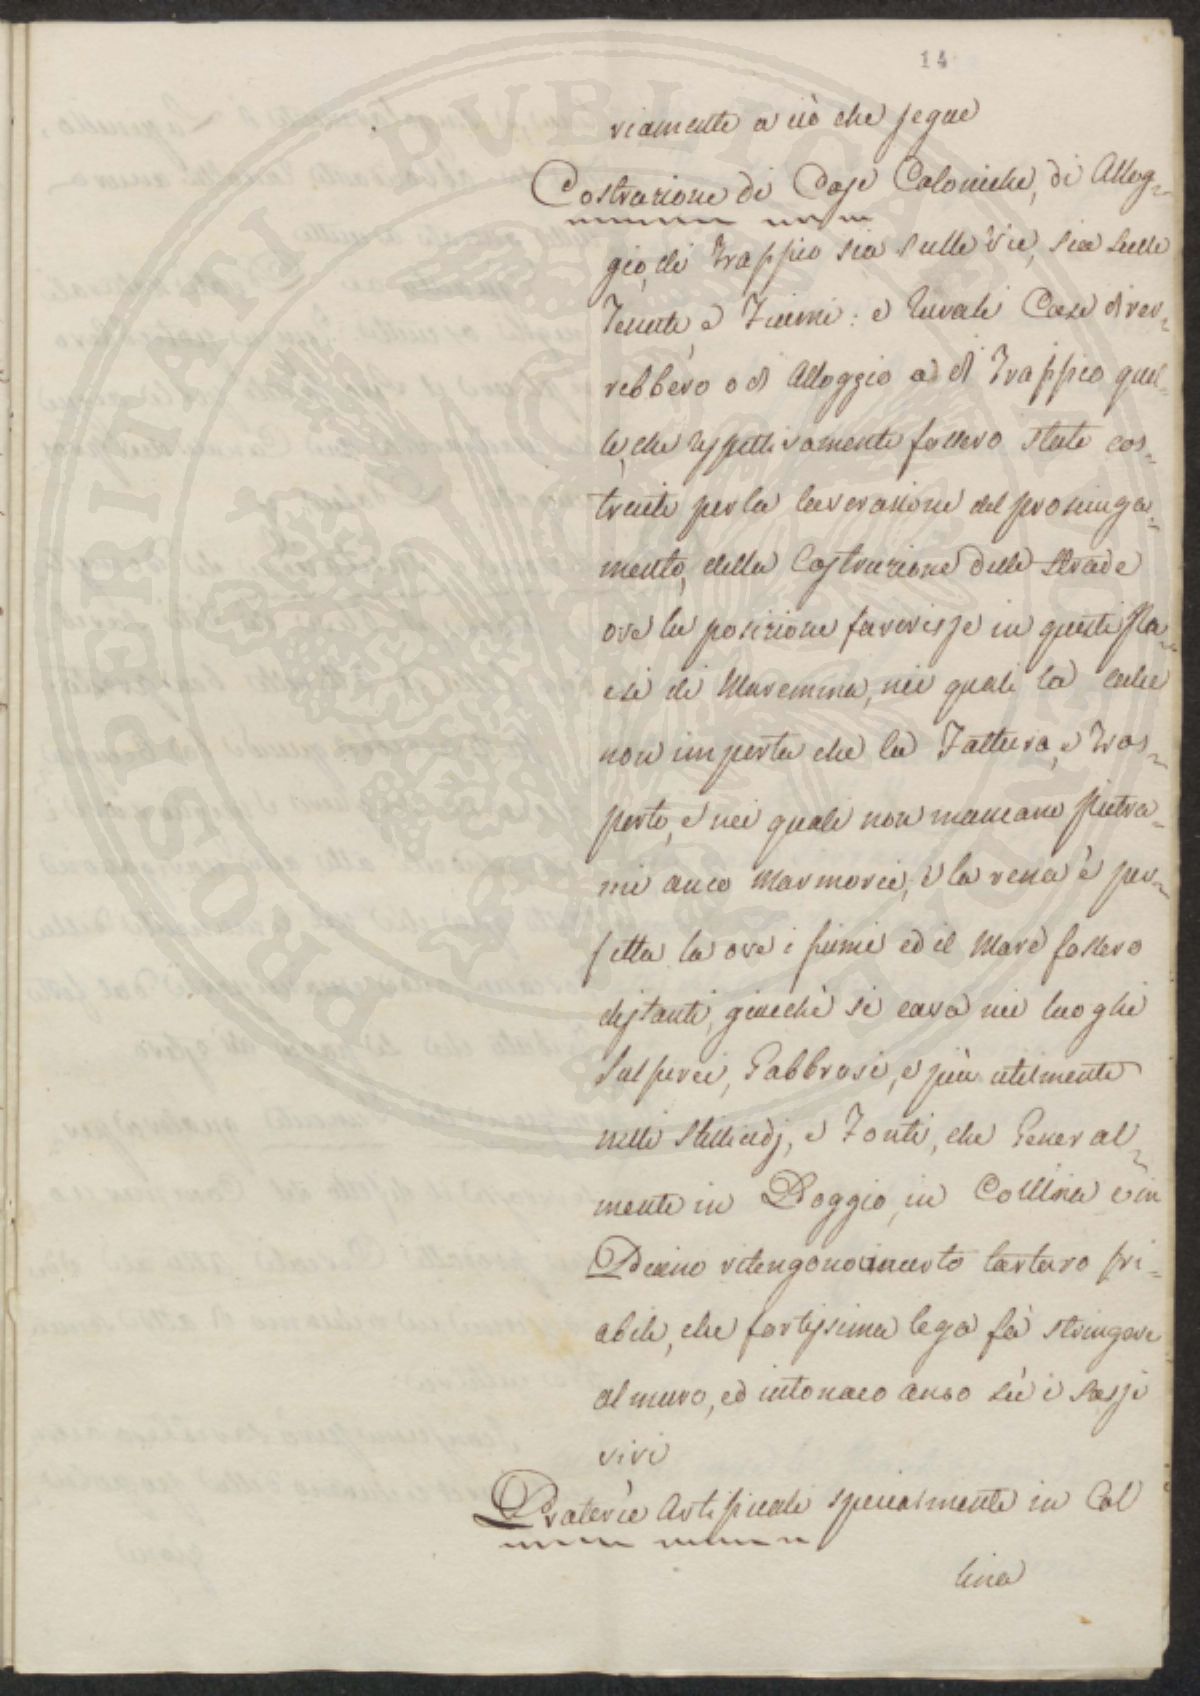 14
viamente a ciò che segue
Costruzione di Case Coloniche, di Allog-
gio, di Traffico sia sulle Vie, sia sulle
Tenute, e Fiumi: e rurali Case diver-
rebbero o di Alloggio o di Traffico quel-
le, che rispettivamente fossero state cos-
truite per la lavorazione del prosciuga-
mento, della Costruzione delle Strade
ove la posizione favorisse in questi Pa-
esi di Maremma, nei quali la calce
non importa che la Fattura, e Tras-
porto, e nei quali non mancano pietra-
mi anco Marmorei, e la rena è per-
fetta la ove i fiumi ed il Mare fossero
distanti, giacchè si cava nei luoghi
Sulfurei, Gabbrosi, e più utilmente
nelli Stillicidj, e Fonti, che General-
mente in Poggio, in Collina e in
Piano ritengono incerto tartaro fri-
abile, che fortissima lega fà stringere
al muro, ed intonaco anco sù i sassi
vivi
Praterie Artificiali specialmente in Col
lina
PROSPERITATI PVBLICAE